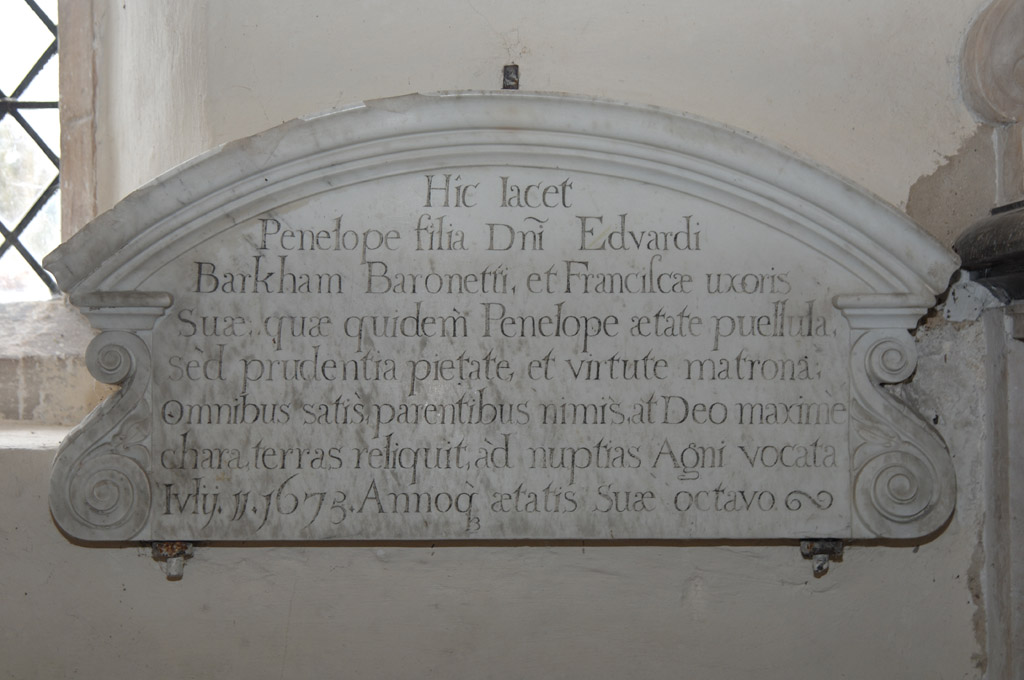 Hic Iacet
Penelope filia Dñi Edvardi
Barkham Baronetti, et Franciſcæ uxoris
Suæ, quæ quidem̀ Penelope ætate puellula,
sèd prudentia pietate, et virtute matrona;
Omnibus satìs, parentibus nimìs, at Deo maximè
chara, terras reliquit, àd nuptias Agni vocata
Ivlij. 11. 1673. Annoq̢ ætatis Suæ octavo